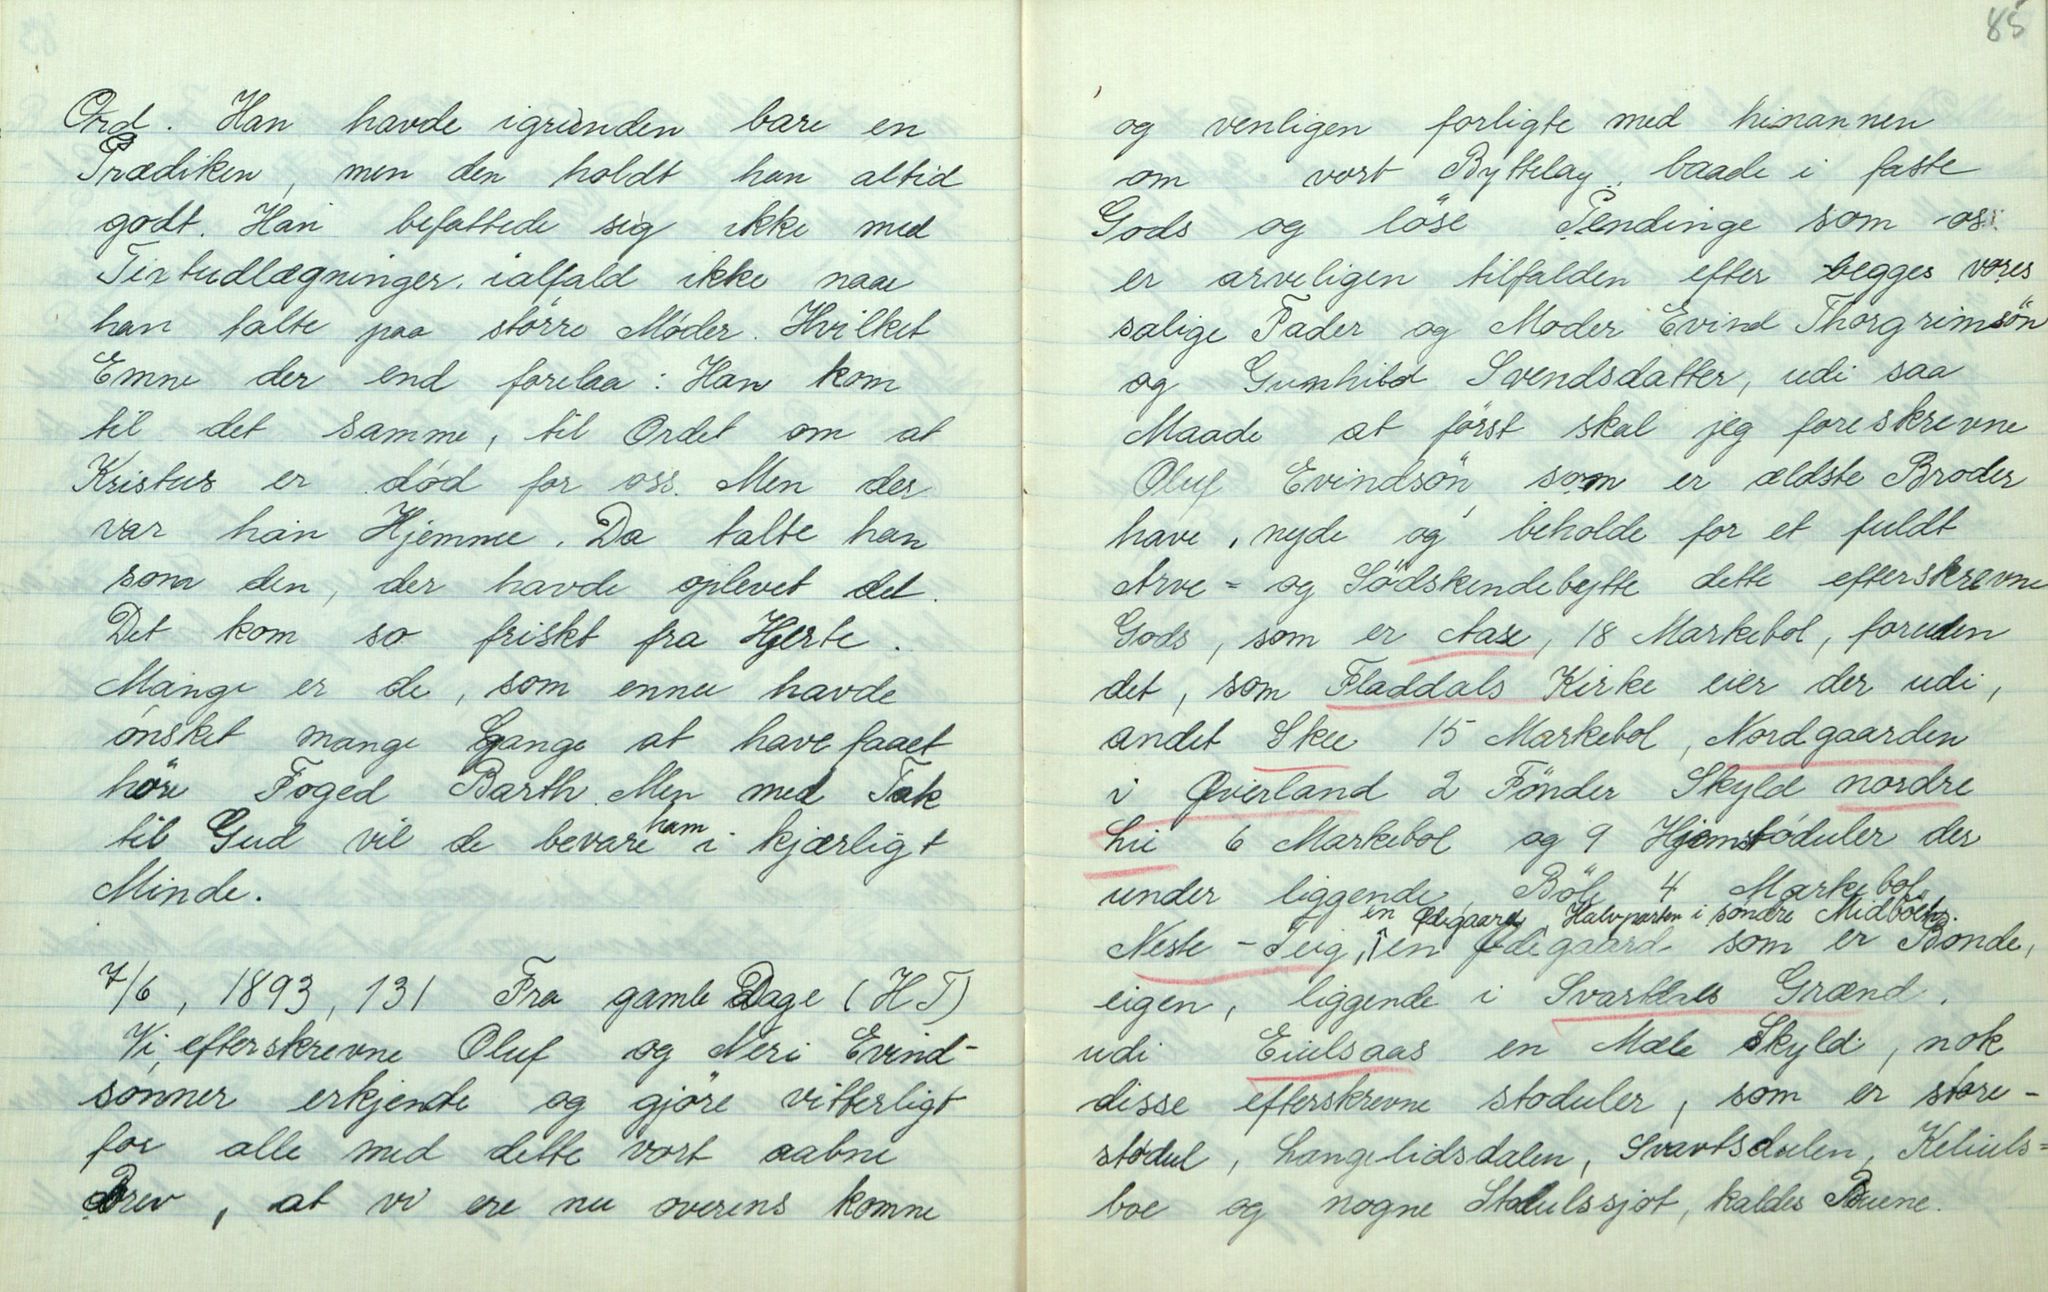 Ord. Han havde igrunden bare en
Prædiken, men den holdt han altid
godt. Han befattede sig ikke med
Textudlægninger, ialfald ikke naar
han talte paa större Møder. Hvilket
Emne der end forelaa: Han kom
til det samme, til Ordet om at
Kristus er död for oss. Men der
var han Hjemme. Da talte han
som den, der havde oplevet det.
Det kom so friskt fra Hjerte.
Mange er de, som ennu havde
önsket mange Gange at have faaet
höre Foged Barth. Men med Tak
til Gud vil de bevare ham i kjærligt
Minde.
7/6, 1893, 131 Fra gamle Dage (H T)
Vi, efterskrevne Oluf og Neri Evind-
sønner erkjende og gjöre vitterligt
for alle med dette vort aabne
Brev, at vi ere nu overens komne
85
og venligen forligte med hinannen
om vort Byttelag, baade i faste
Gods og löse Pendinge som os
er arveligen tilfalden efter begges vores
salige Fader og Moder Evind Thorgrimsön
og Gunhild Svendsdatter, udi saa
Maade at först skal jeg foreskrevne
Oluf Evindsön, som er ældste Broder
have, nyde og beholde for et fuldt
Arve- og Södskendebytte dette efterskrevne
Gods, som er Aase, 18 Markebol, foruden
det, som Fladdals Kirke eier der udi,
andet Skee 15 Markebol, Nordgaarden
i Øverland 2 Tönder Skyld nordre
Lii 6 Markebol og 9 Hjemstöduler der
under liggende, Böle 4 Markebol,
en Ødegaard, Halvparten i söndre Midböen.
Neste-Teig, en Ødegaard som er Bonde,
eigen, liggende i Svartdals Grænd,
udi Eiulsaas en Mæle Skyld, nok
disse efterskrevne stöduler, som er store-
stödul, Langelidsdalen, Svartsdalen, Keliuls-
boe og nogne Stödulssjöt, kaldes Buene.